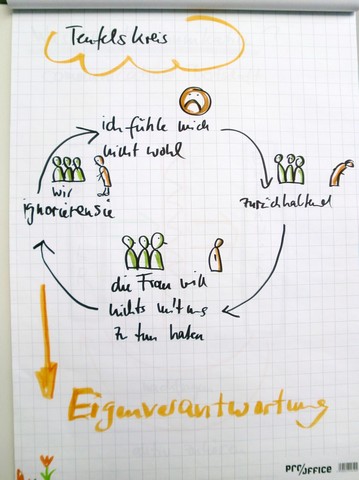 Teufelskreis
ich fühle mich
nicht wohl
zurückhaltend
die Frau will
nichts mit uns
zu tun haben
wir
ignorieren sie
Eigenverantwortung
pro/OFFICE